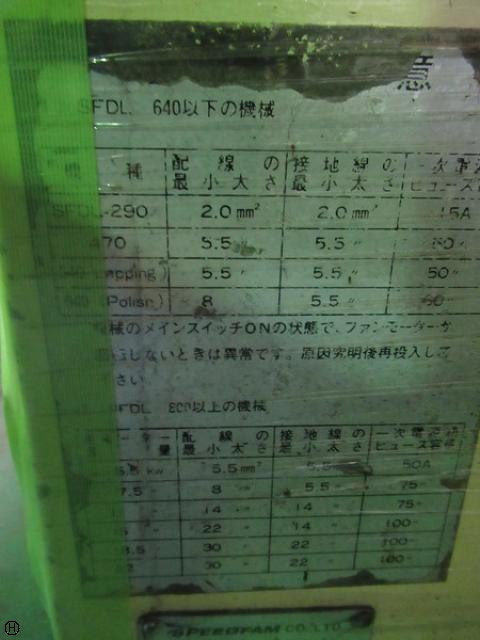 意
SFDL 640以下の機械
機 種 配線の最小太さ 接地線の最小太さ 一次電源ヒューズ
SFDL-290 2.0mm² 2.0mm² 15A
470 5.5〃 5.5〃
(Lapping) 5.5〃 5.5〃 50〃
640 (Polish) 8 5.5〃
機械のメインスイッチONの状態で、ファンモーターが
しないときは異常です。原因究明後再投入して
さい
SFDL 800以上の機械
量 配線の最小太さ 接地線の最小太さ 一次電源ヒューズ容量
kw 5.5mm² 5.5 50A
7.5〃 8〃 5.5〃 75〃
14〃 14〃 75〃
22〃 14〃 100〃
30〃 22〃 100〃
30〃 22〃 100〃
SPEEDFAM CO.,LTD
H